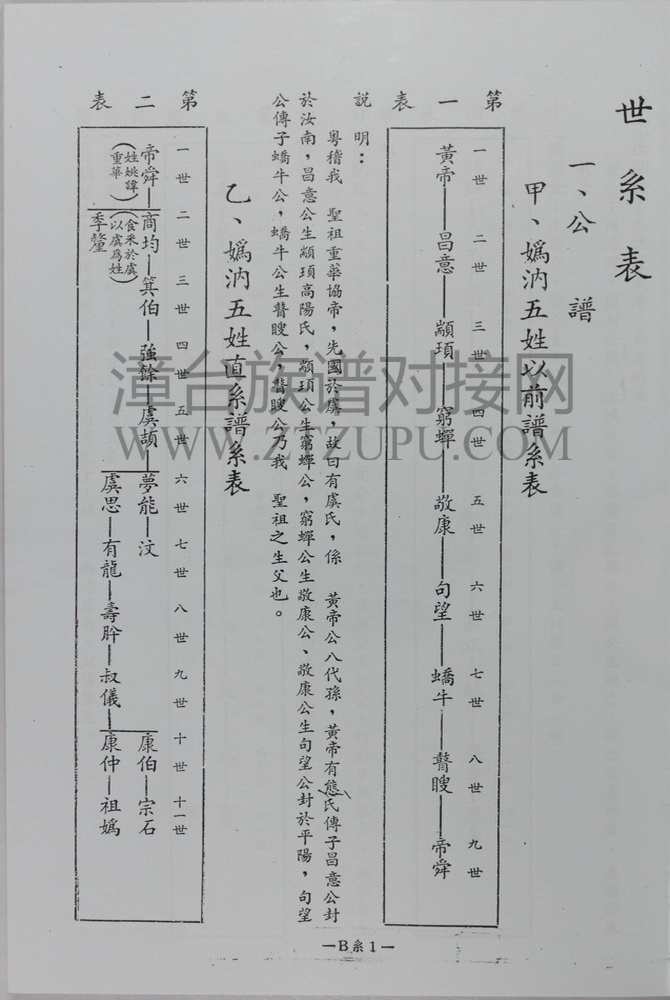 世系表
一、公譜
甲、嬀汭五姓以前譜系表
第一表
一世 二世 三世 四世 五世 六世 七世 八世 九世
黃帝——昌意——顓頊——窮蟬——敬康——句望——蟜牛——瞽瞍——帝舜
說明：
粵稽我　聖祖重華協帝，先國於虞，故曰有虞氏，係　黃帝公八代孫，黃帝有態氏傳子昌意公封
於汝南，昌意公生顓頊高陽氏，顓頊公生窮蟬公，窮蟬公生敬康公、敬康公生句望公封於平陽，句望
公傳子蟜牛公，蟜牛公生瞽瞍公，瞽瞍公乃我　聖祖之生父也。
乙、嬀汭五姓直系譜系表
第二表
一世 二世 三世 四世 五世 六世 七世 八世 九世 十世 十一世
帝舜—商均—箕伯—強餘—虞頡—夢能—汶
康伯—宗石
（姓姚諱重華）
（食采於虞以虞爲姓）
季釐
虞思—有龍—壽肸—叔儀—康仲—祖嬀
—B系1—
漳台族谱对接网
WWW.ZTZUPU.COM